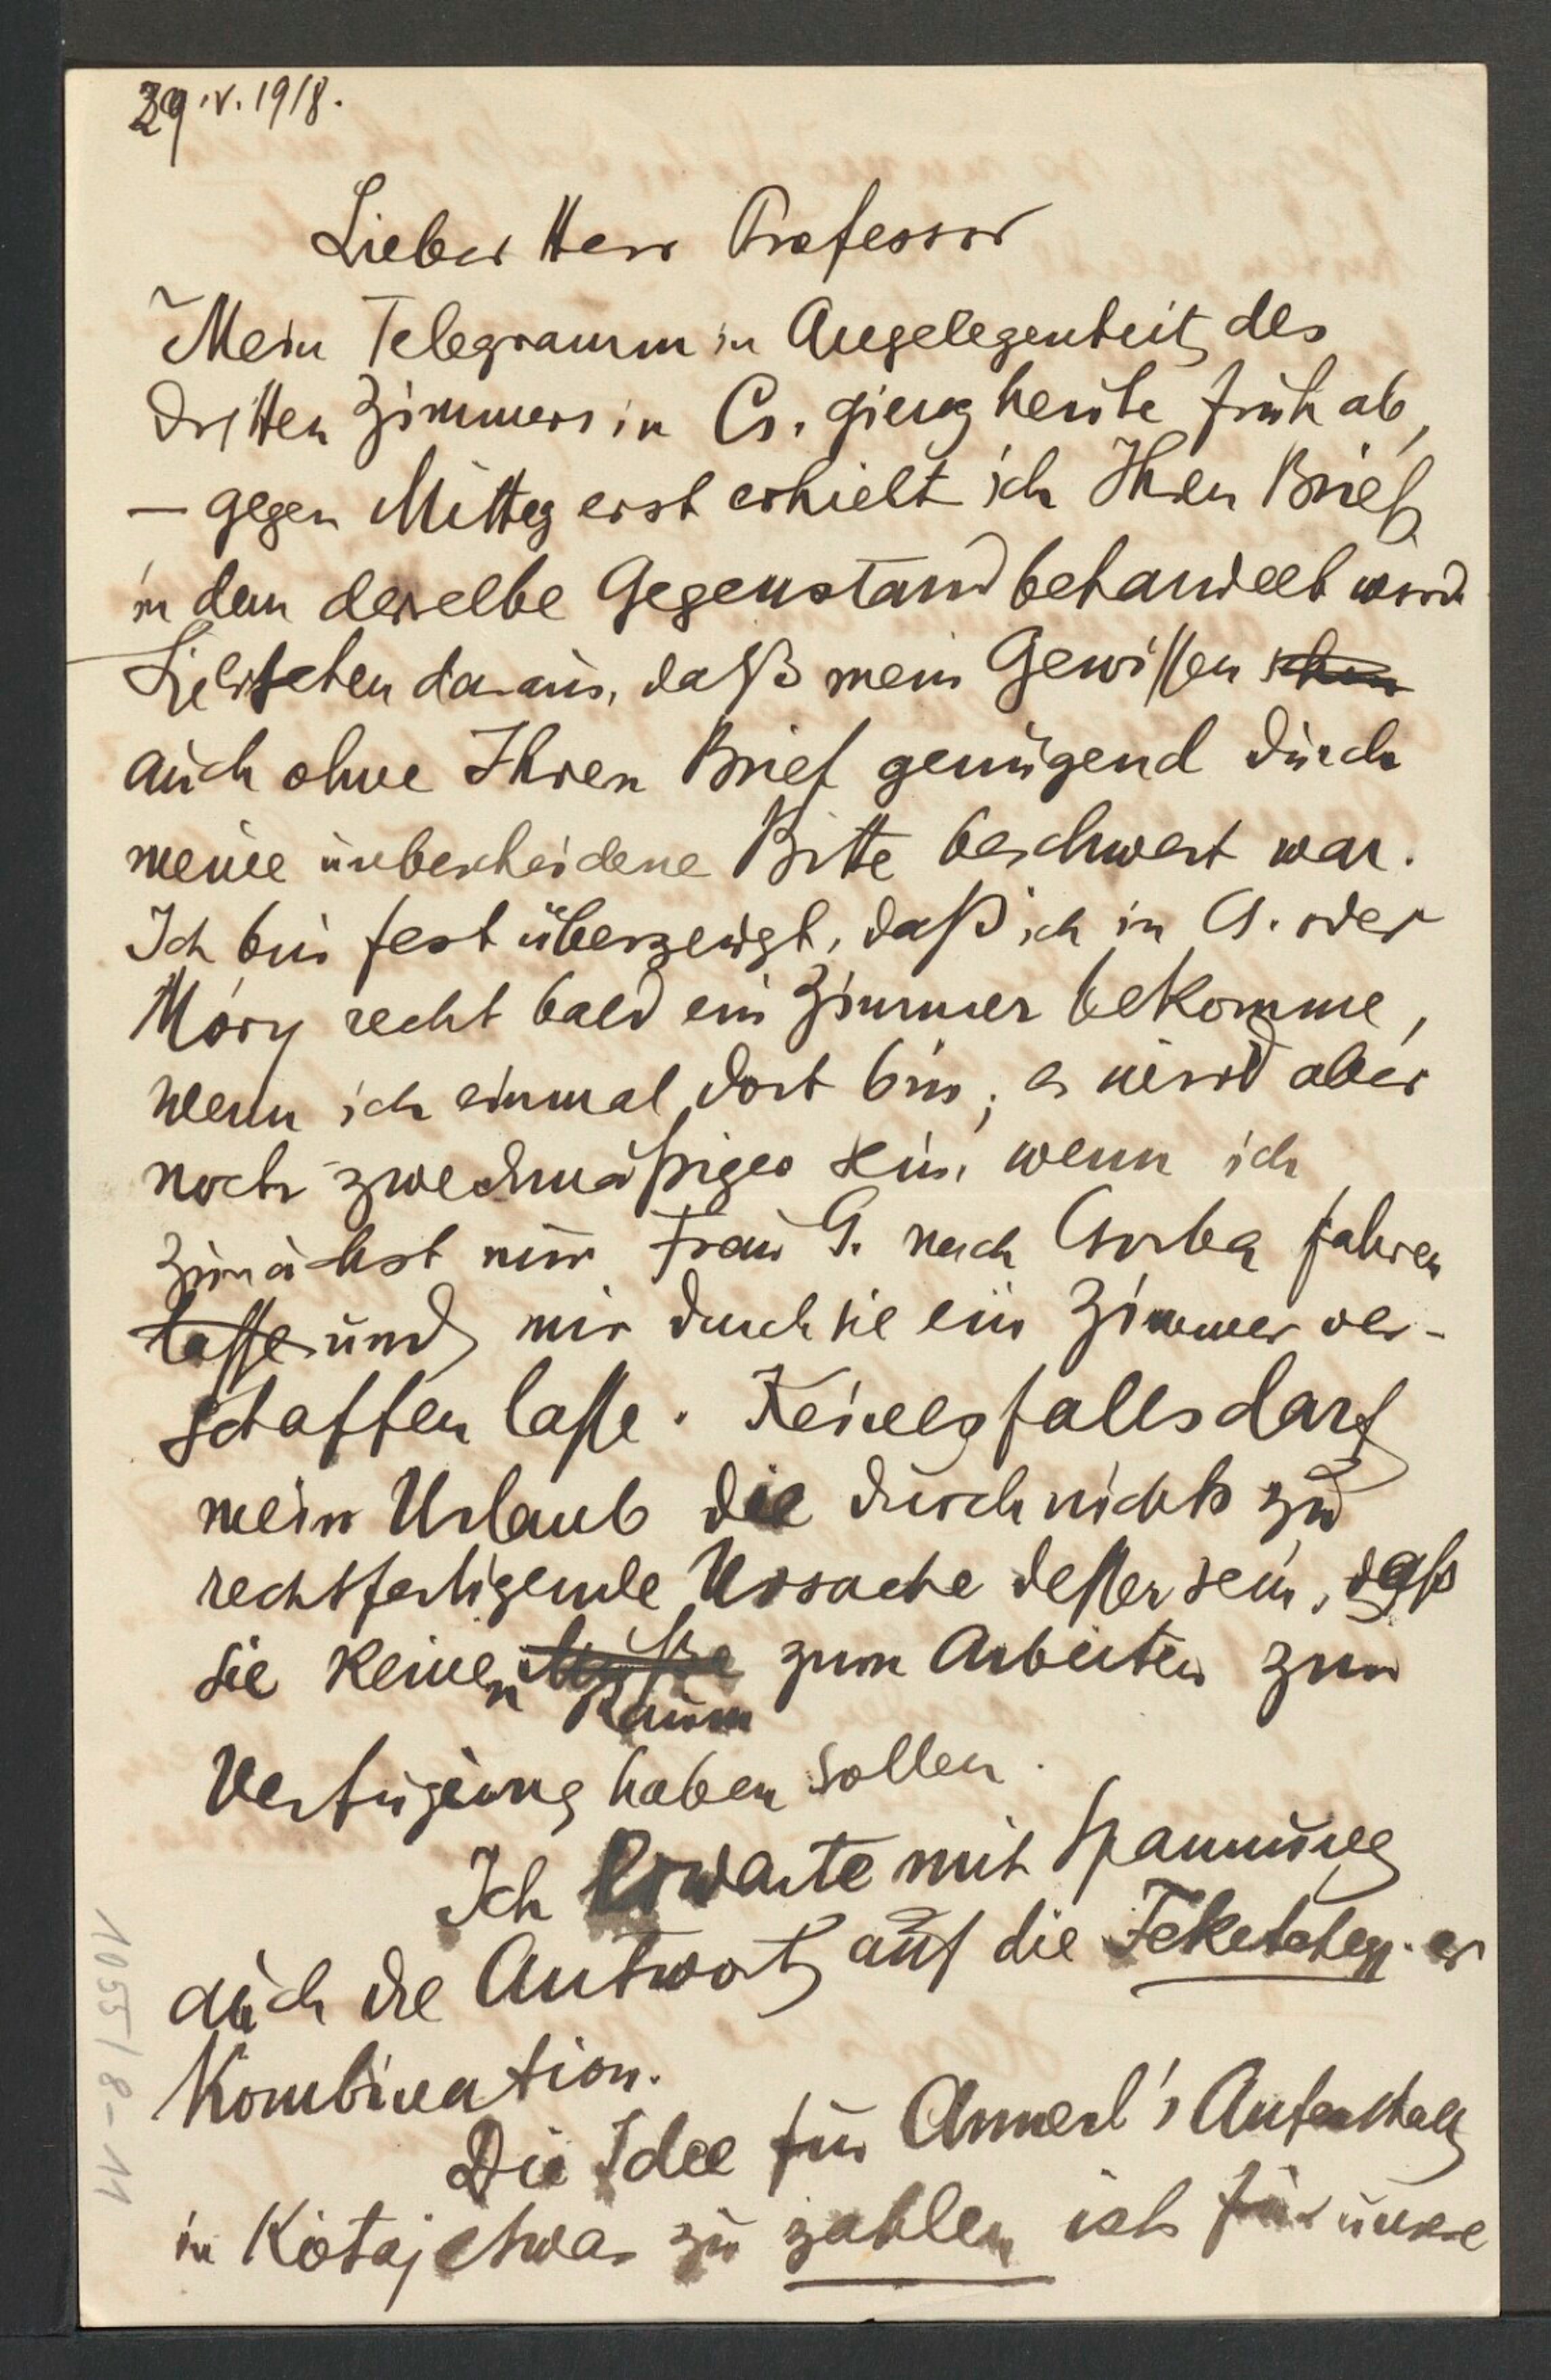 29.IV.1918.
Lieber Herr Professor
Mein Telegramm in Angelegenheit des
dritten Zimmers in Cs. gieng heute früh ab,
– gegen Mittag erst erhielt ich Ihren Brief,
in dem derselbe Gegenstand behandelt wird.
Sie sehen daraus, daß mein Gewissen schon
auch ohne Ihren Brief genügend durch
meine unbescheidene Bitte beschwert war.
Ich bin fest überzeugt, daß ich in Cs. oder
Móry recht bald ein Zimmer bekomme,
wenn ich einmal dort bin; es wird aber
noch zweckmäßiger sein, wenn ich
zunächst nur Frau G. nach Csorba fahren
lasse und mir durch sie ein Zimmer ver-
schaffen lasse. Keinesfalls darf
mein Urlaub die durch nichts zu
rechtfertigende Ursache dessen sein, daß
Sie keinen Muße zum Arbeiten zur
Raum
Verfügung haben sollen.
Ich erwarte mit Spannung
auch die Antwort auf die Feketehegy-er
Kombination.
Die Idee für Annerl's Aufenthalt
in Kótaj etwas zu zahlen ist für unsre
1055/8-11